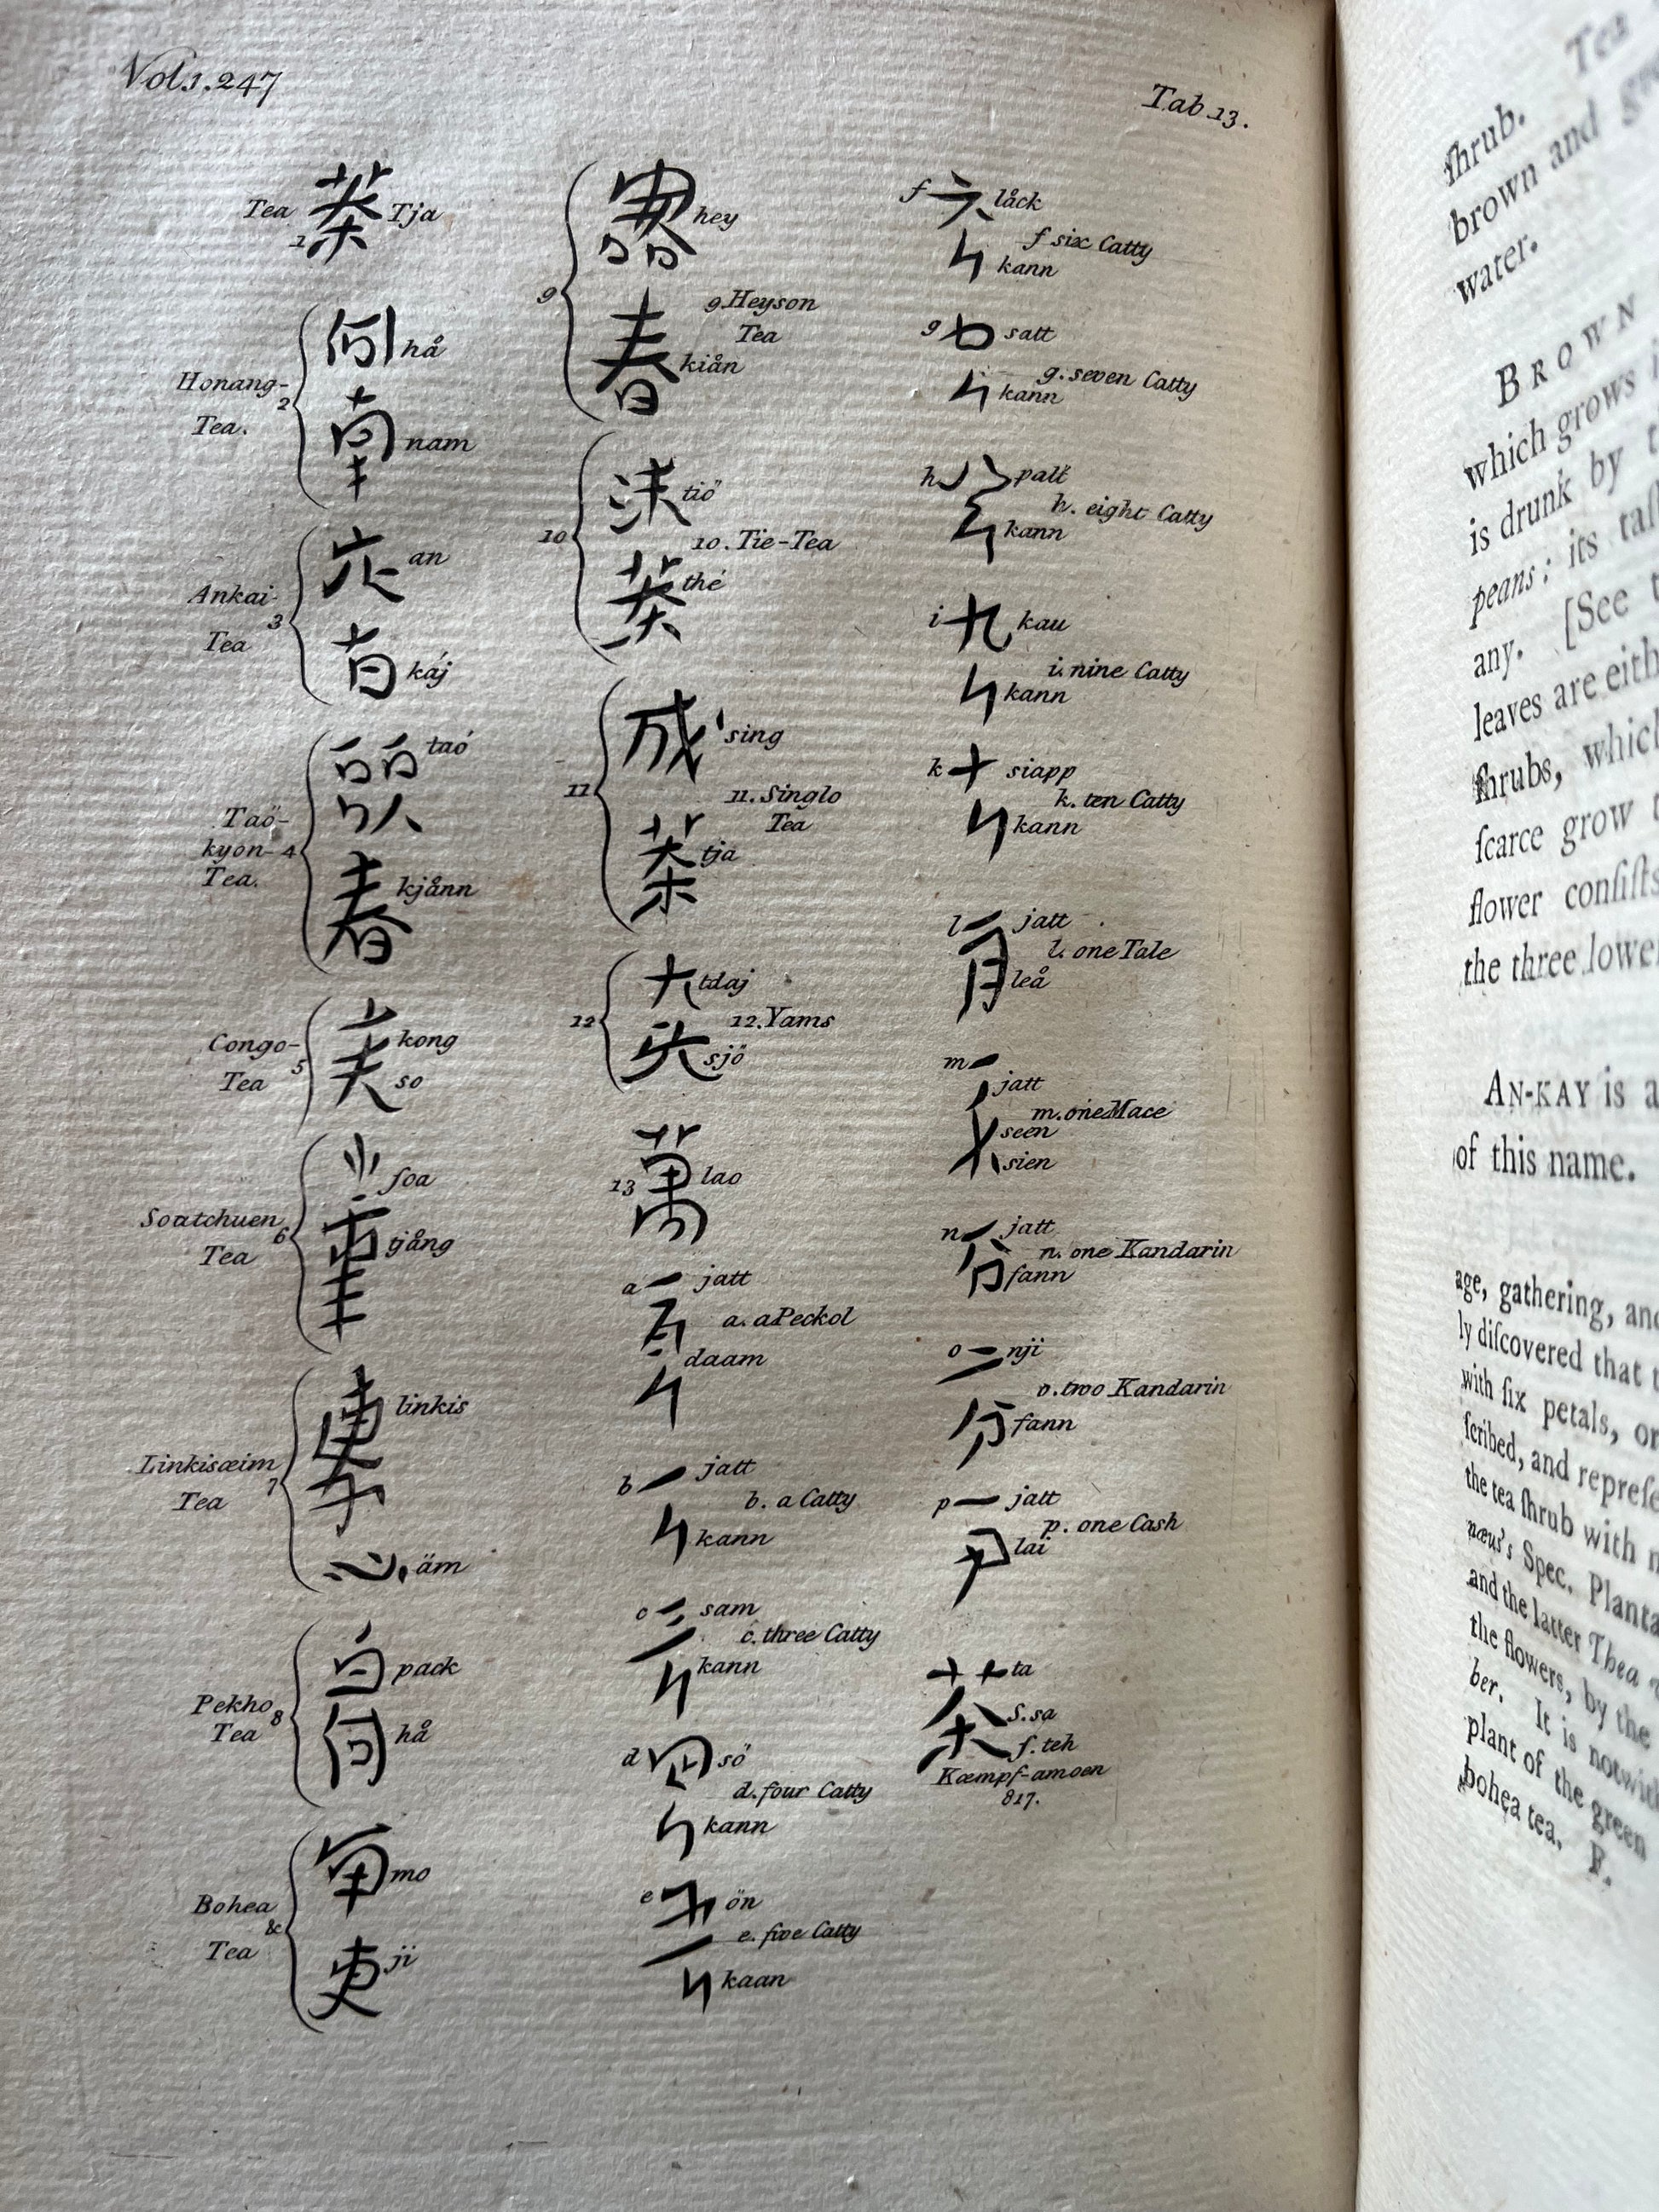 Vol.1.247
Tab.13.
Tea 1 茶 Tja
Honang-
Tea.
2
何 hå
南 nam
Ankai
Tea
3
an
káj
Taö-
kyon-
Tea.
4
taó
春 kjånn
Congo-
Tea
5
kong
so
Soatchuen
Tea
6
soa
tjång
Linkisæim
Tea
7
linkis
子
心 äm
Pekho
Tea
8
白 pack
何 hå
Bohea
Tea
&
mo
ji
9
hey
9. Heyson
Tea
春 kiån
10
tiö
10. Tie-Tea
茶 thé
11
成 sing
11. Singlo
Tea
茶 tja
12
大 tdaj
12. Yams
sjö
13 萬 lao
a 一 jatt
a. a Peckol
daam
b 一 jatt
b. a Catty
斤 kann
c 三 sam
c. three Catty
斤 kann
d 四 sö
d. four Catty
斤 kann
e 五 ön
e. five Catty
斤 kaan
f 六 låck
f six Catty
斤 kann
g 七 satt
g. seven Catty
斤 kann
h 八 patt
h. eight Catty
斤 kann
i 九 kau
i. nine Catty
斤 kann
k 十 siapp
k. ten Catty
斤 kann
l 一 jatt
l. one Tale
leå
m 一
jatt
m. one Mace
seen
sien
n 一 jatt
n. one Kandarin
分 fann
o 二 nji
o. two Kandarin
分 fann
p 一 jatt
p. one Cash
lai
茶 ta
S. sa
f. teh
Kæmpf-amoen
817.
Tea
ſhrub.
brown and
water.
BROWN
which grows
is drunk by
peans: its
any. [See
leaves are
ſhrubs, which
ſcarce grow
flower conſiſts
the three lower
AN-KAY is a
of this name.
age, gathering, and
ly diſcovered that
with ſix petals, or
ſcribed, and
the tea ſhrub with
næus's Spec.
and the latter Thea
the flowers, by the
ber. It is
plant of the green
bohea tea. F.